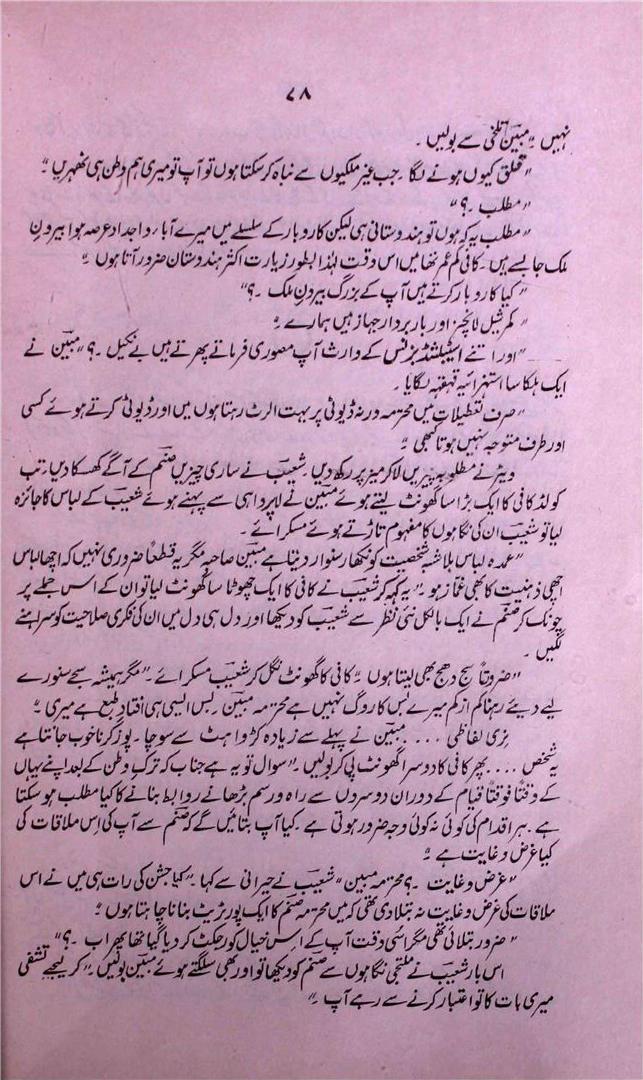 ۷۸
نہیں ۔" مبین تلخی سے بولیں ۔
"تعلق کیوں ہونے لگا ۔ جب غیر ملکیوں سے نباہ کر سکتا ہوں تو آپ تو میری ہم وطن ہی ٹھہریں ۔"
"مطلب ۔؟"
"مطلب یہ کہ ہوں تو ہندوستانی ہی لیکن کاروبار کے سلسلے میں میرے آباء و اجداد عرصہ ہوا بیرونِ
ملک جا بسے ہیں ۔ کافی کم عمر تھا میں اس وقت لہٰذا بطور زیارت اکثر ہندوستان ضرور آتا ہوں ۔"
"کیا کاروبار کرتے ہیں آپ کے بزرگ بیرونِ ملک ۔؟"
"کمرشیل لانچز اور بار بردار جہاز ہیں ہمارے ۔"
"اور اتنے اسٹیبلشڈ بزنس کے وارث آپ مصوری فرماتے پھرتے ہیں بے نکیل ۔؟" مبین نے
ایک ہلکا سا استہزائیہ قہقہہ لگایا ۔
"صرف تعطیلات میں محترمہ ورنہ ڈیوٹی پر بہت الرٹ رہتا ہوں میں اور ڈیوٹی کرتے ہوئے کسی
اور طرف متوجہ نہیں ہوتا کبھی ۔"
ویٹر نے مطلوبہ چیزیں لا کر میز پر رکھ دیں ۔ شعیب نے ساری چیزیں صنم کے آگے کھسکا دیں ۔ تب
کولڈ کافی کا ایک بڑا سا گھونٹ لیتے ہوئے مبین نے لاپرواہی سے پہنے ہوئے شعیب کے لباس کا جائزہ
لیا تو شعیب ان کی نگاہوں کا مفہوم تاڑتے ہوئے مسکرائے ۔
"عمدہ لباس بلاشبہ شخصیت کو نکھار سنوار دیتا ہے مبین صاحبہ مگر یہ قطعاً ضروری نہیں کہ اچھا لباس
اچھی ذہنیت کا بھی غماز ہو ۔" یہ کہہ کر شعیب نے کافی کا ایک چھوٹا سا گھونٹ لیا تو ان کے اس جملے پر
چونک کر صنم نے ایک بالکل نئی نظر سے شعیب کو دیکھا اور دل ہی دل میں ان کی فکری صلاحیت کو سراہنے
لگیں ۔
"ضرورتاً سج دھج بھی لیتا ہوں ۔" کافی کا گھونٹ نگل کر شعیب مسکرائے ۔ "مگر ہمیشہ سجے سنورے
لیے دیئے رہنا کم از کم میرے بس کا روگ نہیں ہے محترمہ مبین ۔ بس ایسی ہی افتاد طبع ہے میری ۔"
نری لفاظی .... مبین نے پہلے سے زیادہ کڑواہٹ سے سوچا ۔ پوز کرنا خوب جانتا ہے
یہ شخص .... پھر کافی کا دوسرا گھونٹ پی کر بولیں ۔ "سوال تو یہ ہے جناب کہ ترکِ وطن کے بعد اپنے یہاں
کے وقتاً فوقتاً قیام کے دوران دوسروں سے راہ و رسم بڑھانے روابط بنانے کا کیا مطلب ہو سکتا
ہے ۔ ہر اقدام کی کوئی نہ کوئی وجہ ضرور ہوتی ہے ۔ کیا آپ بتائیں گے کہ صنم سے آپ کی اِس ملاقات کی
کیا غرض و غایت ہے ۔"
"غرض و غایت ۔؟ محترمہ مبین" شعیب نے حیرانی سے کہا ۔ "کیا جشن کی رات ہی میں نے اس
ملاقات کی غرض و غایت نہ بتلا دی تھی کہ میں محترمہ صنم کا ایک پورٹریٹ بنانا چاہتا ہوں ۔"
"ضرور بتلائی تھی مگر اسی وقت آپ کے اس خیال کو رجکٹ کر دیا گیا تھا پھر اب ۔؟"
اس بار شعیب نے ملتجی نگاہوں سے صنم کو دیکھا تو اور بھی سلگتے ہوئے مبین بولیں ۔ "کر لیجے تشفی
میری بات کا تو اعتبار کرنے سے رہے آپ ۔"